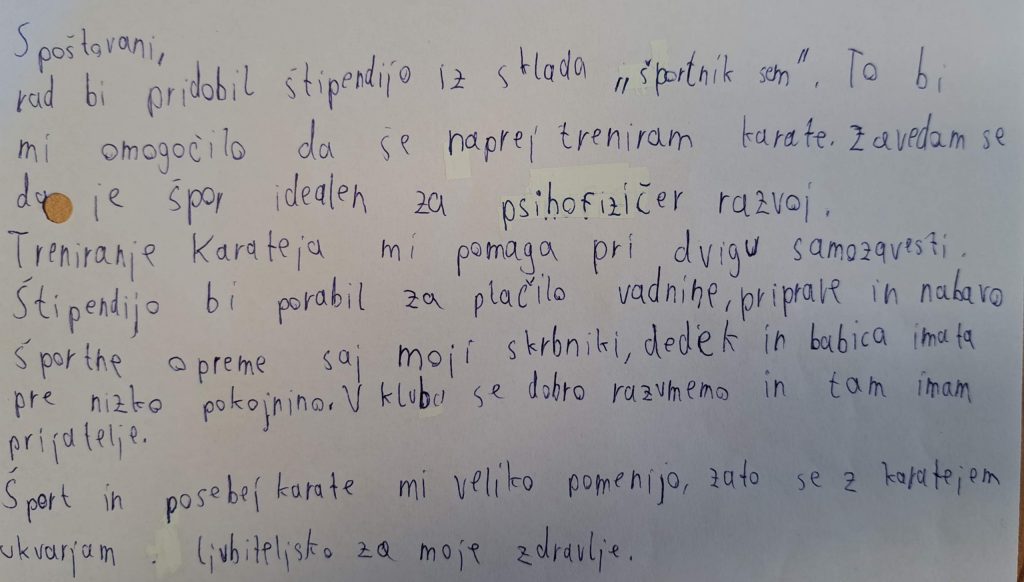 Spoštovani,
rad bi pridobil štipendijo iz sklada „športnik sem". To bi
mi omogočilo da še naprej treniram karate. Zavedam se
da je špor idealen za psihofizičer razvoj.
Treniranje karateja mi pomaga pri dvigu samozavesti.
Štipendijo bi porabil za plačilo vadnine, priprave in nabavo
športne opreme saj moji skrbniki, dedek in babica imata
pre nizko pokojnino. V klubu se dobro razumemo in tam imam
prijatelje.
Šport in posebej karate mi veliko pomenijo, zato se z karatejem
ukvarjam . ljubiteljsko za moje zdravlje.